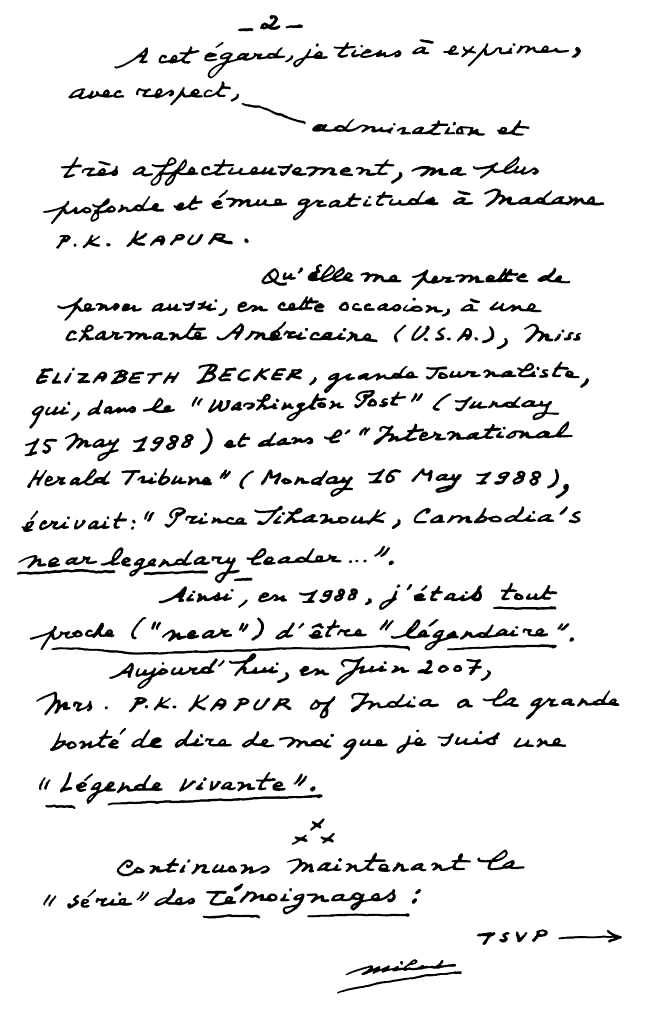 - 2 -
A cet égard, je tiens à exprimer,
avec respect,
admiration et
très affectueusement, ma plus
profonde et émue gratitude à Madame
P.K. KAPUR.
Qu'Elle me permette de
penser aussi, en cette occasion, à une
charmante Américaine (U.S.A.), Miss
ELIZABETH BECKER, grande Journaliste,
qui, dans le "Washington Post" (Sunday
15 May 1988) et dans l'"International
Herald Tribune" (Monday 16 May 1988),
écrivait: "Prince Sihanouk, Cambodia's
near legendary leader...".
Ainsi, en 1988, j'étais tout
proche ("near") d'être "légendaire".
Aujourd'hui, en Juin 2007,
Mrs. P.K. KAPUR of India a la grande
bonté de dire de moi que je suis une
"Légende vivante".
x x x
Continuons maintenant la
"série" des Témoignages :
TSVP →